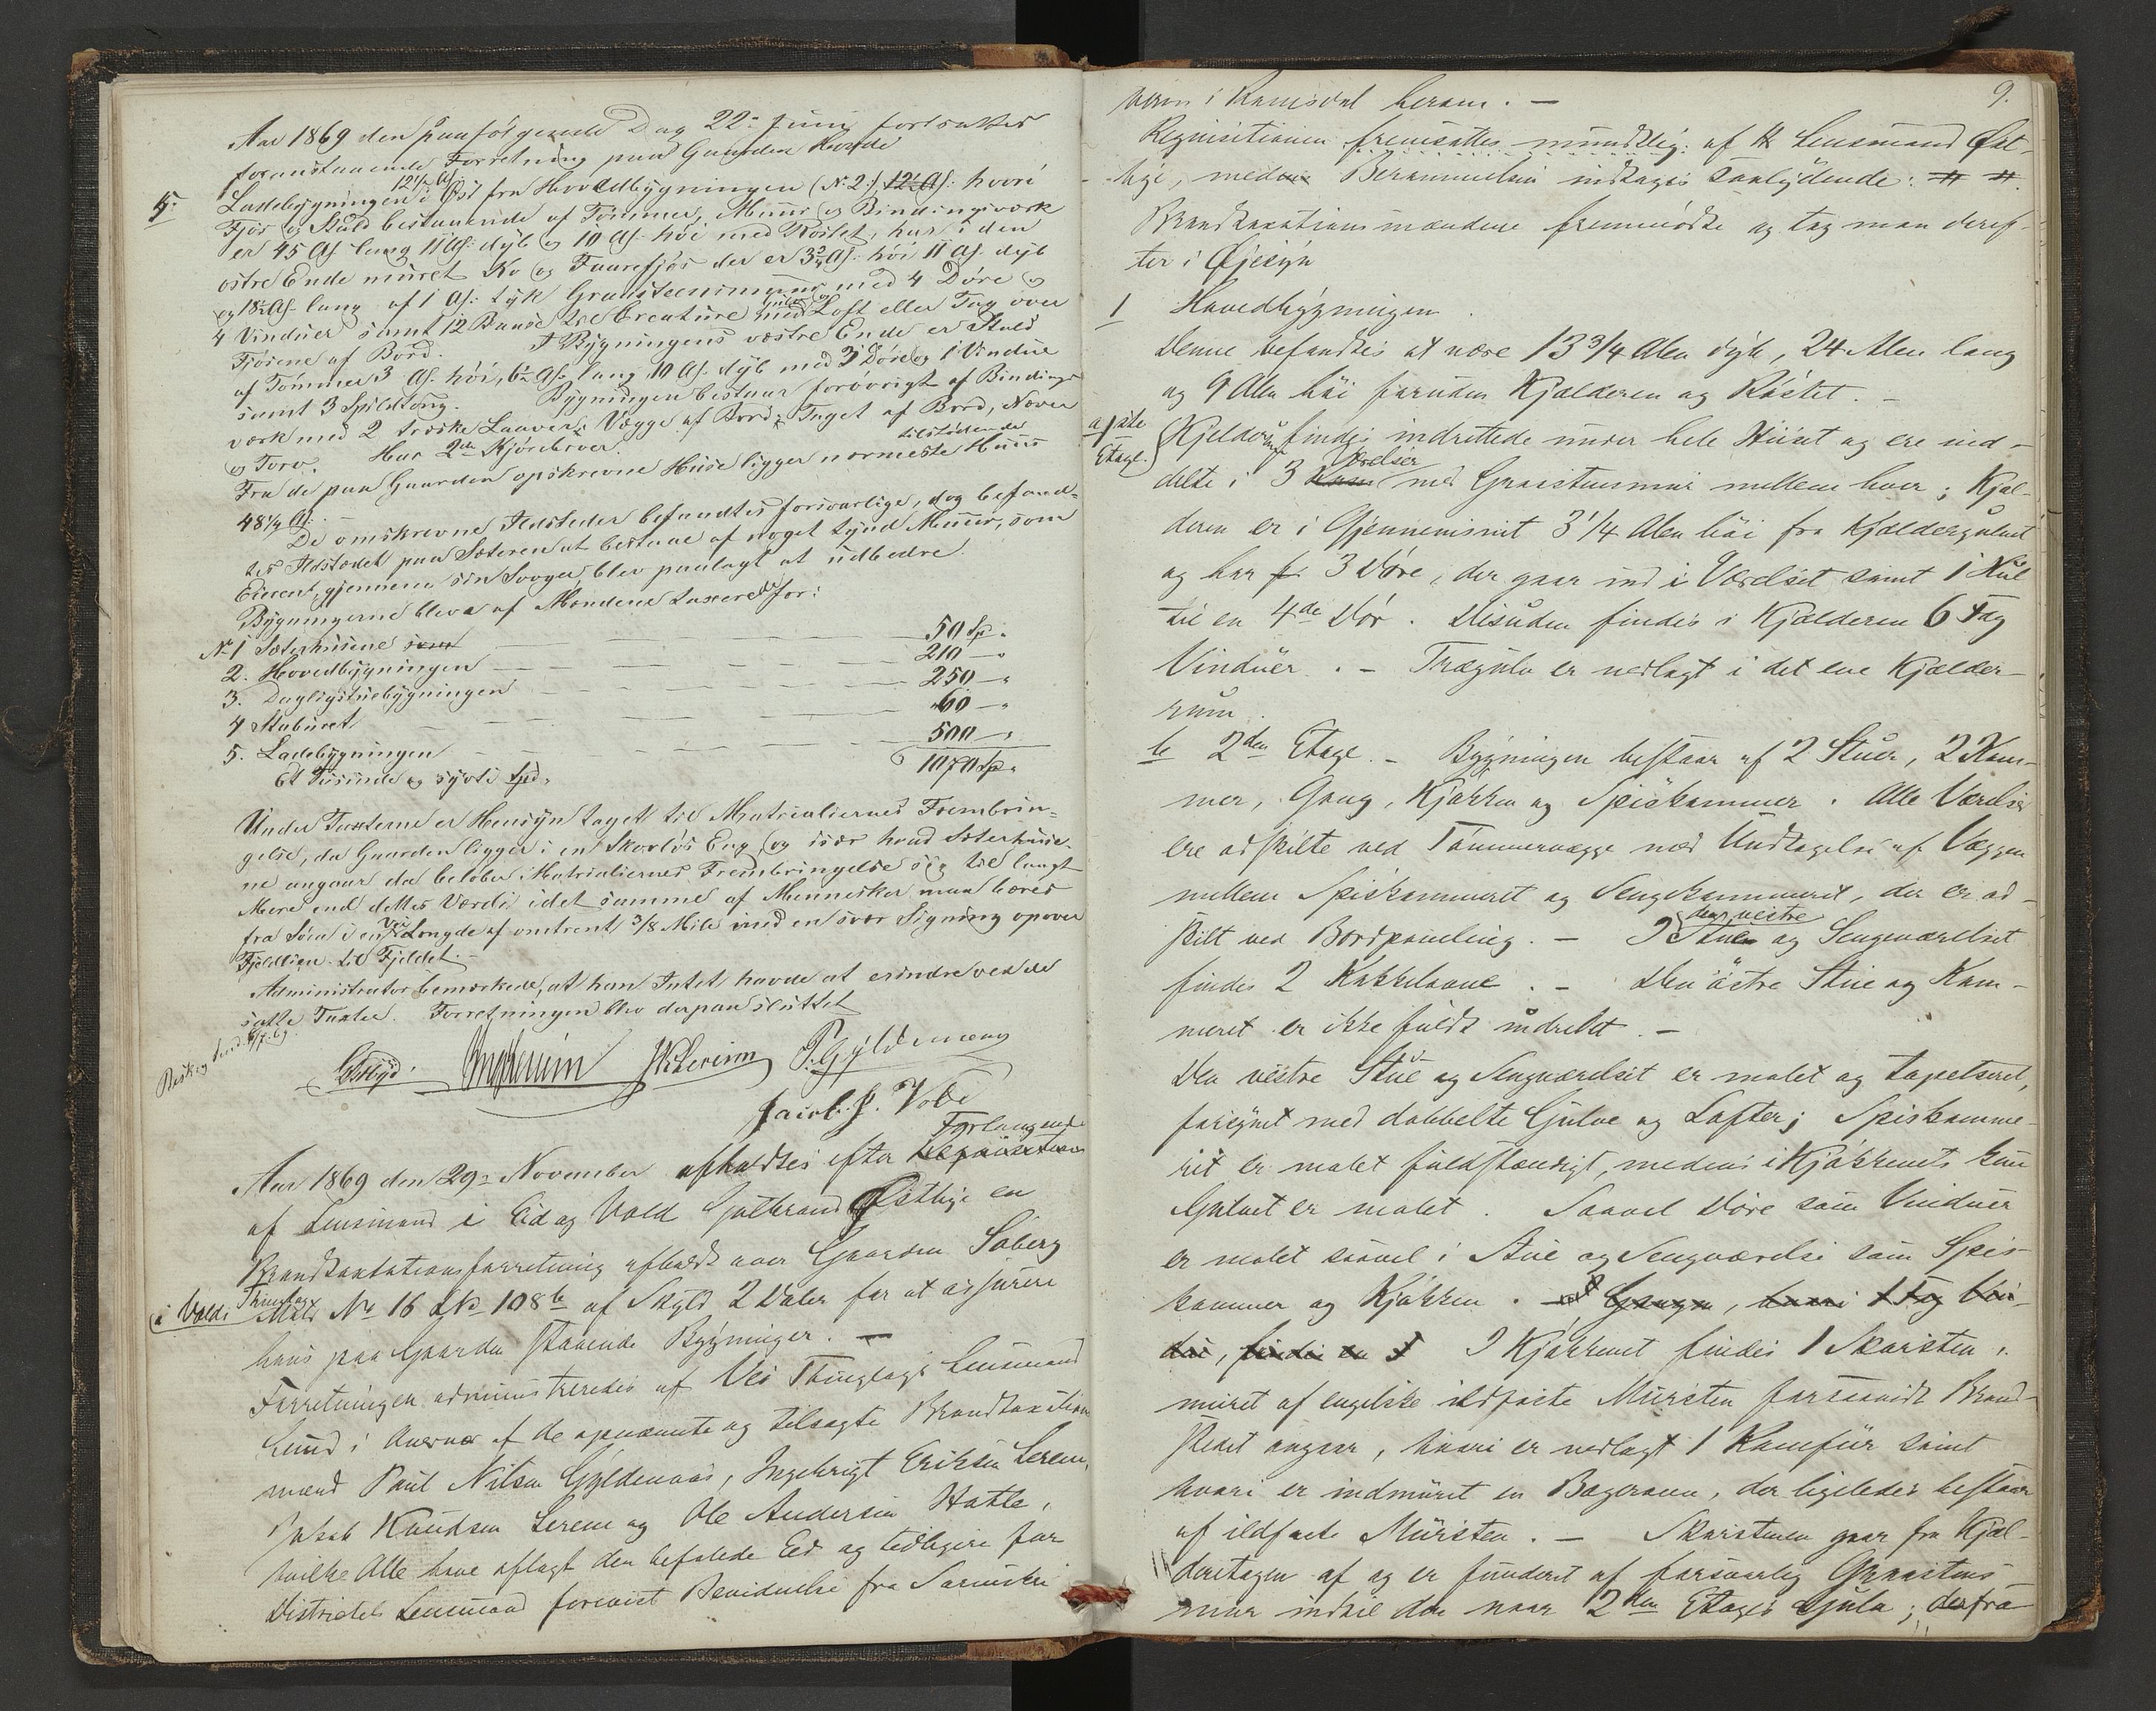 Aar 1869 den paafølgende Dag 22de Juni fortsattes
foranstaaende Forretning paa Gaarden
5: Ladebygningen 12 1/2 Al: i Øst fra Hovedbygningen (No 2:) 12 1/2 Al: hvori
Fjøs og Stald bestaaende af Tømmer, Muur og Bindingsværk
er 45 Al: lang 11 Al: dyb og 10 Al: høi med Røstet, har i den
østre Ende muret Ko og Faarefjøs der er 3 3/4 Al: høi 11 Al. dyb
og 18 1/2 Al. lang af 1 Al: tyk Graasteensmuur med 4 Døre og
4 Vinduer samt 12 Baase til Creature med Gulv og Loft eller Tag over
Fjøsene af Bord. I Bygningens vestre Ende er Stald
af Tømmer 3 Al. høi, 6 1/2 Al. lang 10 Al. dyb med 3 Døre og 1 Vindue
samt 3 Spildtoug. Bygningen bestaar forøvrigt af Bindings
værk med 2 Laaver, Vægge af Bord, Taget af Bord, Næver
og Torv. Har 2de Kjørebroer.
Fra de paa Gaarden opskrevne Huse ligger nærmeste tilstødende Huus
48 1/4 Al: –
De omskrevne Ildsteder befandtes forsvarlige, dog befand-
tes Ildstedet paa Sæteren at bestaae af noget tynd Muur, som
Eieren, gjennem sin Svoger blev paalagt at udbedre.
Bygningerne bleve af Mændene taxerede for:
No 1 Sæterhusene 50 Sp "
2. Hovedbygningen 210 – "
3. Dagligstuebygningen 250 – "
4 Staburet 60 – "
5. Ladebygningen 500 – "
Et Tusinde og syvti Spd. 1070 Sp "
Under Taxterne er Hensyn taget til Matrialiernes Frembrin-
gelse, da Gaarden ligger i en Skovløs Eng og især hvad Sæterhuse-
ne angaar da beløber Matrialiernes Frembringelse sig til langt
Mere end dettes Værdi idet samme af Mennesker maa bæres
fra Søen i en Vei Længde af omtrent 3/8 Mile med en svær Stigning opover
Fjeldlien til Fjeldet. –
Administrator bemærkede, at han Intet havde at erindre ved de
satte Taxter. Forretningen blev derpaa sluttet
P. Gyldenaas
Jacob P. Volde
Aar 1869 den 29de November afholdtes efter Forlangende
af Lensmand i Eid og Vold Gulbrand Østhye en
Brandtaxtationsforretning afholdt over Gaarden Soberg
i Volds Thinglag Matr No 16 LNo 108b af Skyld 2 Daler for at assurere
hans paa Gaarden staaende Bygninger. –
Forretningen administreredes af Veø Thinglags Lensmand
Lund i Overvær af de opnævnte og tilsagte Brandtaxations
mænd Paul Nilsen Gyldenaas, Ingebrigt Eriksen Lerem,
Jakob Knudsen Lerem og Ole Andersen Hatle,
hvilke Alle have aflagt den befalede Eed og tidligere for
Distriktets Lensmand forevist Bevidnelse fra Sorenskri
9.
veren i Romsdal herom. –
Requisitionen fremsattes mundtlig af Lensmand Øst-
hye, medens Berammelsen indtages saalydende:
Brandtaxationsmændene fremmødte og tog man deref-
ter i Øiesyn
1 Hovedbygningen.
Denne befandtes at være 13 3/4 Alen dyb, 24 Alen lang
og 9 Alen høi foruden Kjælderen og Røstet. –
a, 1ste Etage. Kjelderum findes indrettede under hele Huset og ere ind-
delte i 3 Værelser med Graasteensmur mellem hver; Kjæl-
deren er i Gjennemsnit 3 1/4 Alen høi fra Kjældergulvet
og har 3 Døre, der gaar ind i Værelset samt 1 Hul
til en 4de Dør. Desuden findes i Kjælderen 6 Fag
Vinduer. – Trægulv er nedlagt i det ene Kjælder-
rum.
b 2den Etage. – Bygningen bestaar af 2 Stuer, 2 Kam-
mer, Gang, Kjøkken og Spiskammer. Alle Værelser
ere adskilte ved Tømmervægge med Undtagelse af Væggen
mellem Spiskammeret og Sengekammeret, der er ad-
skilt ved Bordpaneling. – I den vestre Stue og Sengeværelset
findes 2 Kakkelovne. – Den østre Stue og Kam-
meret er ikke fuldt indredet. –
Den vestre Stue og Sengeværelset er malet og tapetseret,
forsynet med dobbelte Gulve og Lofter; Spiskamme-
ret er malet fuldstændigt, medens i Kjøkkenets kun
Gulvet er malet. Saavel Døre som Vinduer
er malet saavel i Stue og Sengeværelse som Spis-
kammer og Kjøkken. – Gangen, hvori 1 Fag Vin-
due, findes en I Kjøkkenet findes 1 Skorsten,
muret af engelske ildfaste Mursten forsaavidt Brand-
stedet angaar, hvori er nedlagt 1 Komfur samt
hvori er indmuret en Bagerovn, der ligeledes bestaar
af ildfaste Mursten. – Skorstenen gaar fra Kjæl-
deretagen af og er funderet af forsvarlig Graastens
mur indtil den naar 2den Etages Gulv; derfra